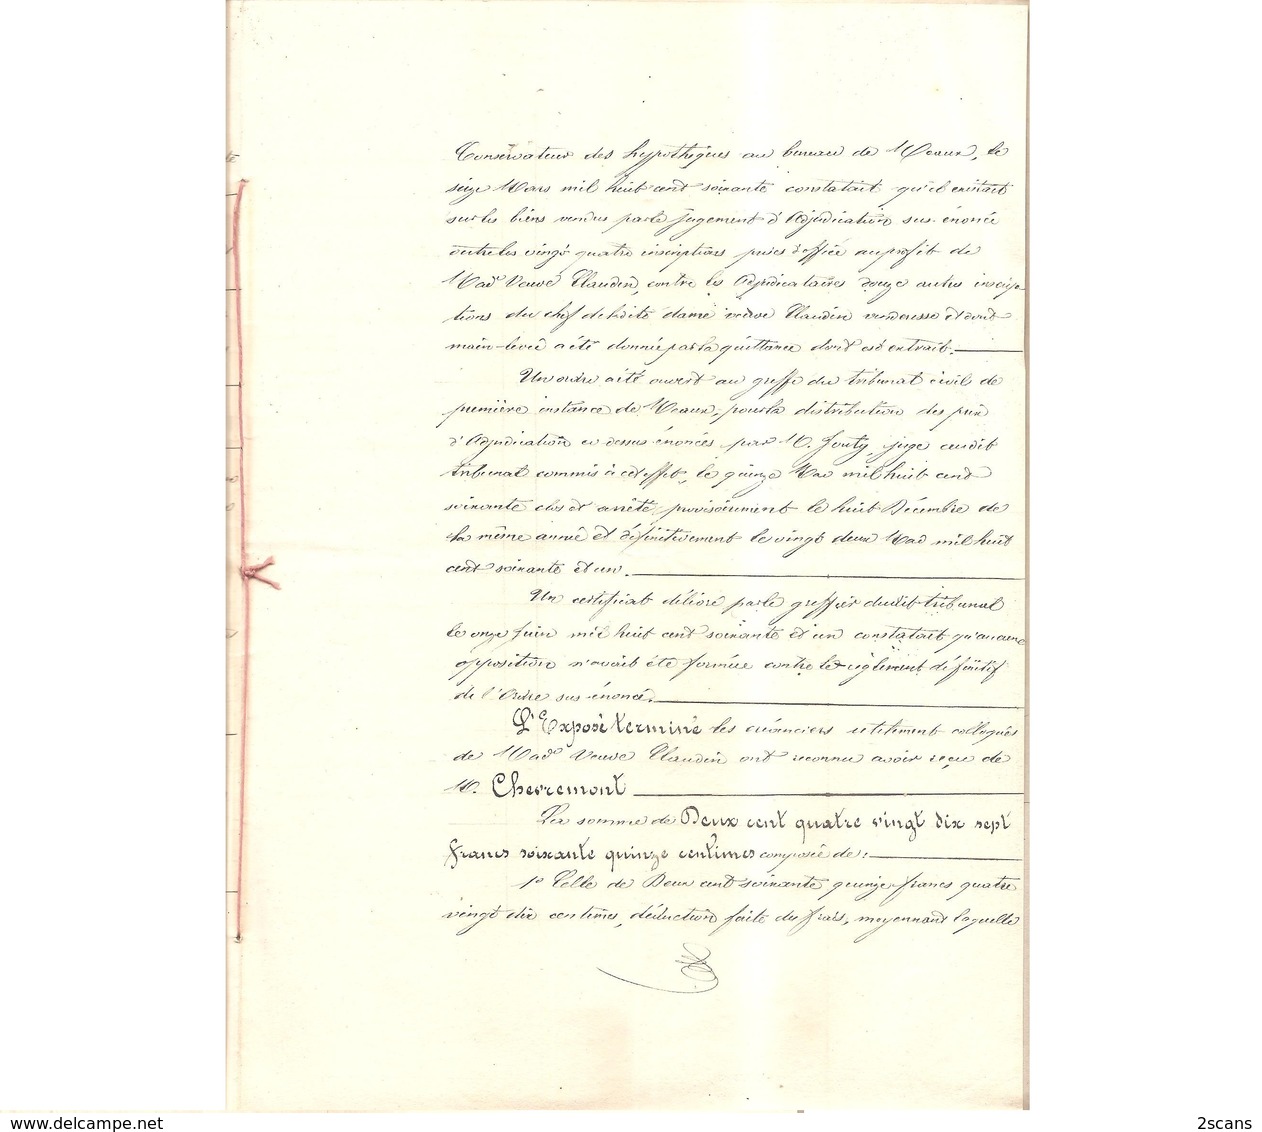 Conservateur des hypothèques au bureau de Meaux, le
seize Mars mil huit cent soixante constatait qu'il existait
sur les biens vendus par le jugement d'Adjudication sus-énoncé
outre les vingt quatre inscriptions prises d'office au profit de
Mad^e Veuve Claudin, contre les Adjudicataires douze autres inscrip-
tions du chef de ladite dame veuve Claudin venderesse et dont
main-levée a été donnée par la quittance dont est extrait.
Un ordre a été ouvert au greffe du tribunal civil de
première instance de Meaux, pour la distribution des prix
d'Adjudication ci-dessus énoncés par M. Jouty, juge audit
tribunal commis à cet effet, le quinze Mai mil huit cent
soixante clos et arrêté provisoirement le huit Décembre de
la même année et définitivement le vingt deux Mai mil huit
cent soixante et un.
Un certificat délivré par le greffier dudit tribunal
le onze Juin mil huit cent soixante et un constatait qu'aucune
opposition n'avait été formée contre le règlement définitif
de l'Ordre sus-énoncé.
L'Exposé terminé les créanciers utilement colloqués
de Mad^e Veuve Claudin ont reconnu avoir reçu de
M. Chevremont
La somme de Deux cent quatre vingt dix sept
francs soixante quinze centimes composée de :
1° Celle de Deux cent soixante quinze francs quatre
vingt dix centimes, déduction faite des frais, moyennant laquelle
www.delcampe.net
2scans